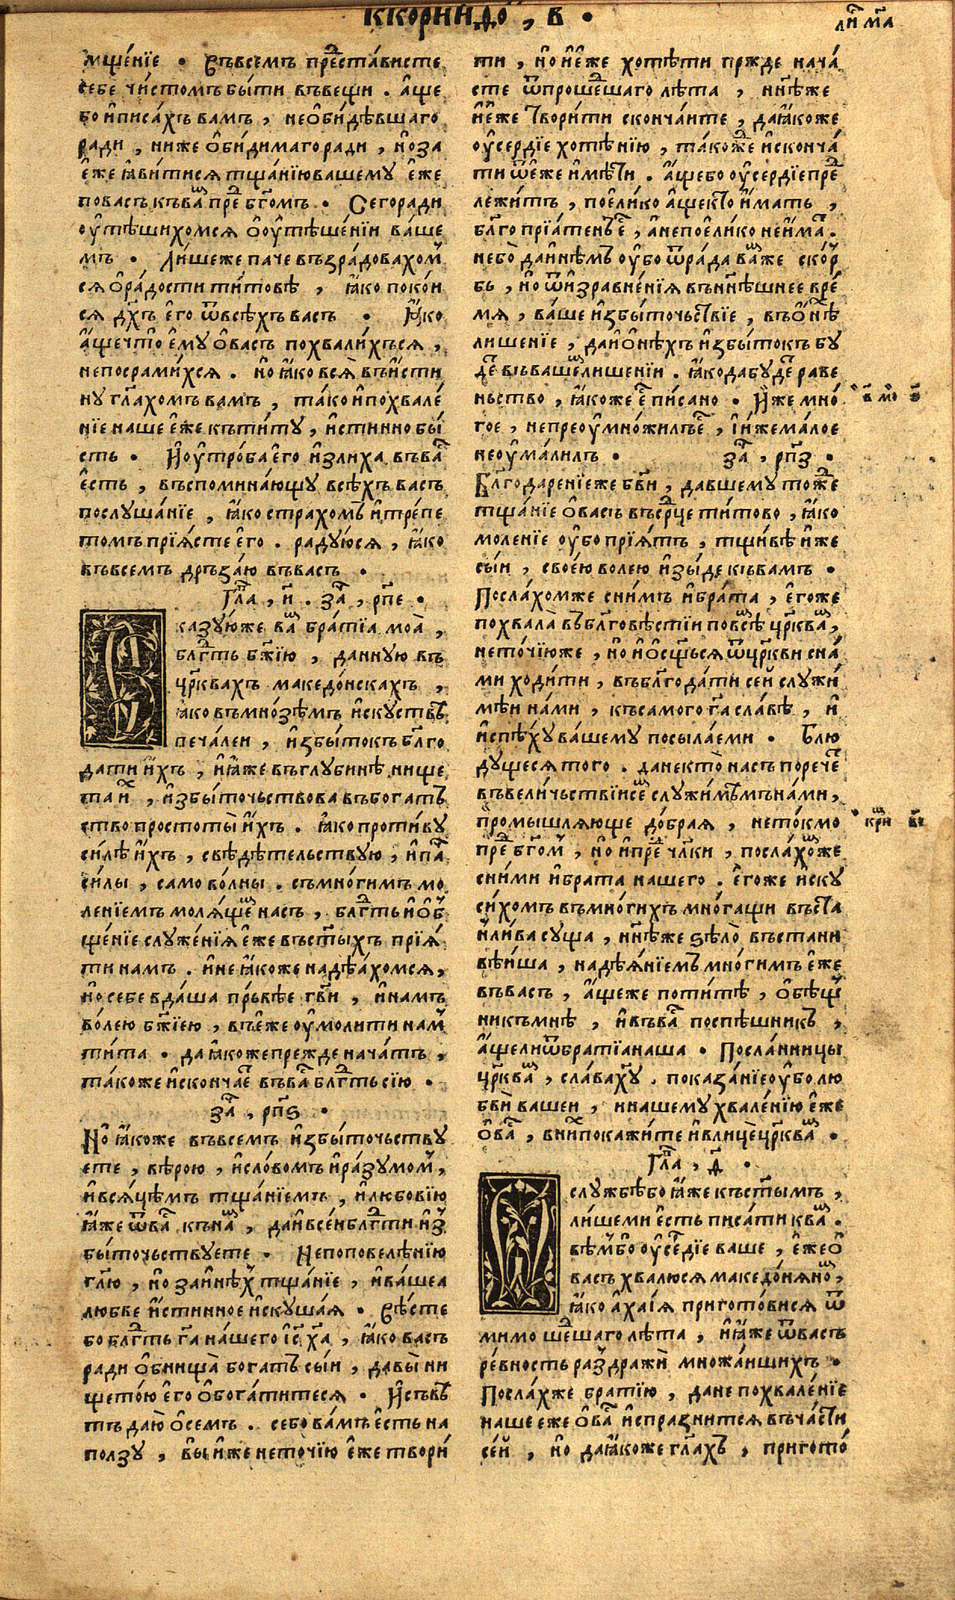 ккории҆ⷴдоⷨ , в҃ ·
ли҃ ма҃
мще́нїе · Съвсемъ преⷣста́висте
себе чи́стомъ бы́ти въвещи . а҆ще
бо и҆писа́хъ вамъ , неѻ҆би́дѣвшаго
ради , ниже ѻ҆би́димаго ради , но҆ за
е҆же ꙗ҆ви́тися тща́нїю вашему е҆же
по васъ къ ваⷨ преⷣ бг҃омъ · Сего ради
ѹ҆тѣ́шихомся ѻ҆ ѹ҆тѣше́нїи ва́ше
мъ · Ли́шеже паче въз̾ра́довахоⷨ
ся ѻ҆ ра́дости ти́товѣ , ꙗ҆ко поко́и
ся дх҃ъ е҆го ѿ всѣ́хъ васъ · Ꙗ҆́ко
а҆́ще что̀ е҆му̀ ѻ҆ васъ похвали́хъся ,
непосрами́хся . но҆ ꙗ҆́ко вся̀ въи҆́сти
ну гл҃ахомъ вамъ , та́ко и҆ похвале́
нїе наше е҆́же къ ти́ту , и҆́стинно бы́
сть · И҆ ѹ҆тро́ба е҆го и҆зли́ха въ ваⷭ҇
е҆́сть , въспомина́ющу всѣ́хъ васъ
послуша́нїе , ꙗ҆ко страхомъ и҆ тре́пе
томъ прїя́сте е҆го . ра́дуюся , ꙗ҆́ко
въвсемъ дръза́ю въ васъ ·
Глⷡ҇а , и҃ . заⷱ҇ , рп҃е ·
Сказу́юже ваⷨ братїа моа̀ ,
блгⷣть бж҃їю , да́нную въ
цр҃квахъ македо́нскахъ ,
ꙗ҆ко въ мно́зѣмъ и҆скуствѣ
печа́леи , и҆збы́токъ бл҃го
дати и҆́хъ , и҆ ꙗ҆́же въ глубинѣ̀ нище
та иⷯ , и҆збы́точьствова въ бога́тъ
ство простоты̀ и҆́хъ . ꙗ҆ко проти́ву
си́лѣ и҆́хъ , свѣдѣ́тельствую , и҆ паⷱ҇
си́лы , само во́лны . съ мно́гимъ мо
ле́нїемъ моля́ще насъ , блгⷣть и҆ ѻ҆б
ще́нїе служе́нїя е҆́же въ ст҃ы́хъ прїя́
ти намъ . и҆ не ꙗ҆́коже надѣ́ахомся ,
но҆ себе вда́ша пръ́вѣе гв҃и , и҆ намъ
во́лею бж҃їею , въ е҆́же ѹ҆моли́ти наⷨ
ти́та · да ꙗ҆́коже пре́жде нача́тъ ,
та́коже и҆ сконча́еⷮ въ ваⷭ҇ блгⷣть сїю ·
заⷱ҇ , рп҃ѕ ·
Но҆ ꙗ҆́коже въвсемъ и҆збы́точьству
ете , вѣ́рою , и҆ сло́вомъ и҆ ра́зумоⷨ ,
и҆ вся́цѣмъ тща́нїемъ , и҆ любо́вїю
ꙗ҆́же ѿ ваⷭ҇ къ наⷨ , да и҆ в сеи блгⷣти и҆з
бы́точьствуете · Не по повелѣ́нїю
гл҃ю , но҆ за и҆нѣⷯ тща́нїе , и҆ ва́шеа
любве и҆́стинное и҆скуша́я · Вѣ́сте
бо блгⷣть га҃ на́шего і҆с҃ ха҃ , ꙗ҆́ко васъ
ради ѻ҆бнища̀ бога́тъ сы́и , да вы̀ ни
щето́ю е҆го ѻ҆богати́теся · И҆ съвѣ
тъ даю̀ ѻ҆ семъ . се бо ва́мъ е҆́сть на
ползу , вы и҆́же нето́чїю е҆́же твори́
ти , но҆ и҆ е҆́же хотѣ́ти пр̾жде нача́
сте ѿ проше́шаго лѣ́та , нн҃ѣ же
и҆ е҆́же твори́ти сконча́ите , да ꙗ҆́коже
ѹ҆се́рдїе хотѣ́нїю , та́коⷤ и҆ сконча́
ти ѿ е҆́же и҆мѣ́ти . а҆́ще бо ѹ҆се́рдїе преⷣ
лежи́тъ , по е҆ли́ко а҆ще кто̀ и҆́мать ,
бл҃гопрїа́тенъ еⷭ҇ , а҆ не по е҆ли́ко не и҆́маⷮ .
не бо̀ да и҆нѣмъ ѹ҆бо ѿра́да ваⷨже ско́р
бь , но҆ ѿ и҆зравне́нїя въ нн҃ѣшнее вре́
мя , ва́ше и҆збы́точьствїе , въ ѻ҆нѣⷯ
лише́нїе , да и҆ ѻ҆нѣ́хъ и҆збы́токъ бу́
деⷮ въ ва́ше лише́нїи . ꙗ҆ко да бу́деⷮ ра́ве
ньство , ꙗ҆́коже еⷭ҇ пи́сано · И҆́же мно́
гое , не преѹ҆мно́жилъ еⷭ҇ , і҆ и҆́же ма́лое
не ѹ҆ма́лилъ · заⷱ҇ , рп҃з ·
Бл҃годаре́нїе же бв҃и , да́вшему то́ⷤже
тща́нїе ѻ҆ васъ въ срⷣце ти́тово , ꙗ҆́ко
моле́нїе ѹ҆бо прїя́тъ , тщи́вѣи же
сы́и , свое́ю во́лею и҆зы́де къ вамъ ·
Посла́хомже с ни́мъ и҆ бра́та , е҆гоже
похвала̀ въ бл҃говѣ́стїи по всѣⷯ цр҃кваⷯ ,
нето́чїю же , но҆ и҆ ѻ҆сщ҃ься ѿ цр҃кви с на́
ми ходи́ти , въ бл҃года́ти сей служи́
мѣи на́ми , къ самого́ га҃ сла́вѣ , и҆
и҆ спѣ́ху вашему посыла́еми · Блю
дущеся того . да не кто̀ насъ поре́четⷮ
въ вели́чьствїи сеⷨ служи́мѣмъ на́ми ,
промышля́юще до́брая , нето́кмо
преⷣ бг҃оⷨ , но҆ и҆ преⷣ чл҃ки , посла́хоⷨже
с ни́ми и҆ брата нашего . е҆го же и҆ску
си́хомъ въ мно́гихъ мно́гащи въста
нли́ва су́ща , нн҃ѣже ѕѣло̀ въстани
вѣ́иша , надѣ́янїемъ мно́гимъ е҆же
въ васъ , а҆́ще же по ти́тѣ , ѻ҆бѣщ
никъ мнѣ̀ , и҆ въ ваⷭ҇ поспѣ́шникъ ,
а҆́ще ли ѿ братїа наша · Посла́нницы
цр҃кваⷨ , сла́ва хⷭ҇у . показа́нїе ѹ҆бо лю
бвѝ вашеи , и нашему хвале́нїю е҆же
ѻ҆ ваⷭ҇ , в ниⷯ покажи́те и҆ в лицѐ цр҃кваⷨ ·
Глⷡ҇а , д҃ ·
Ѡ҆ слу́жбѣ бо ꙗ҆́же къ ст҃ымъ ,
ли́ше ми е҆сть писа́ти к ваⷨ .
вѣ́мь бо ѹ҆сеⷬ҇дїе ваше , е҆же ѻ҆
васъ хвалю́ся македо́няноⷨ ,
ꙗ҆́ко а҆ха́їя пригото́вися ѿ
мимо ше́шаго лѣ́та , и҆ ꙗ҆́же ѿ васъ
ре́вность раздражѝ множа́ишихъ ·
Посла́хже бра́тїю , да не похвале́нїе
наше еже ѻ҆ ваⷭ҇ и҆спразни́тся въ ча́сти
се́й , но҆ да ꙗ҆́коже гл҃ахъ , пригото́